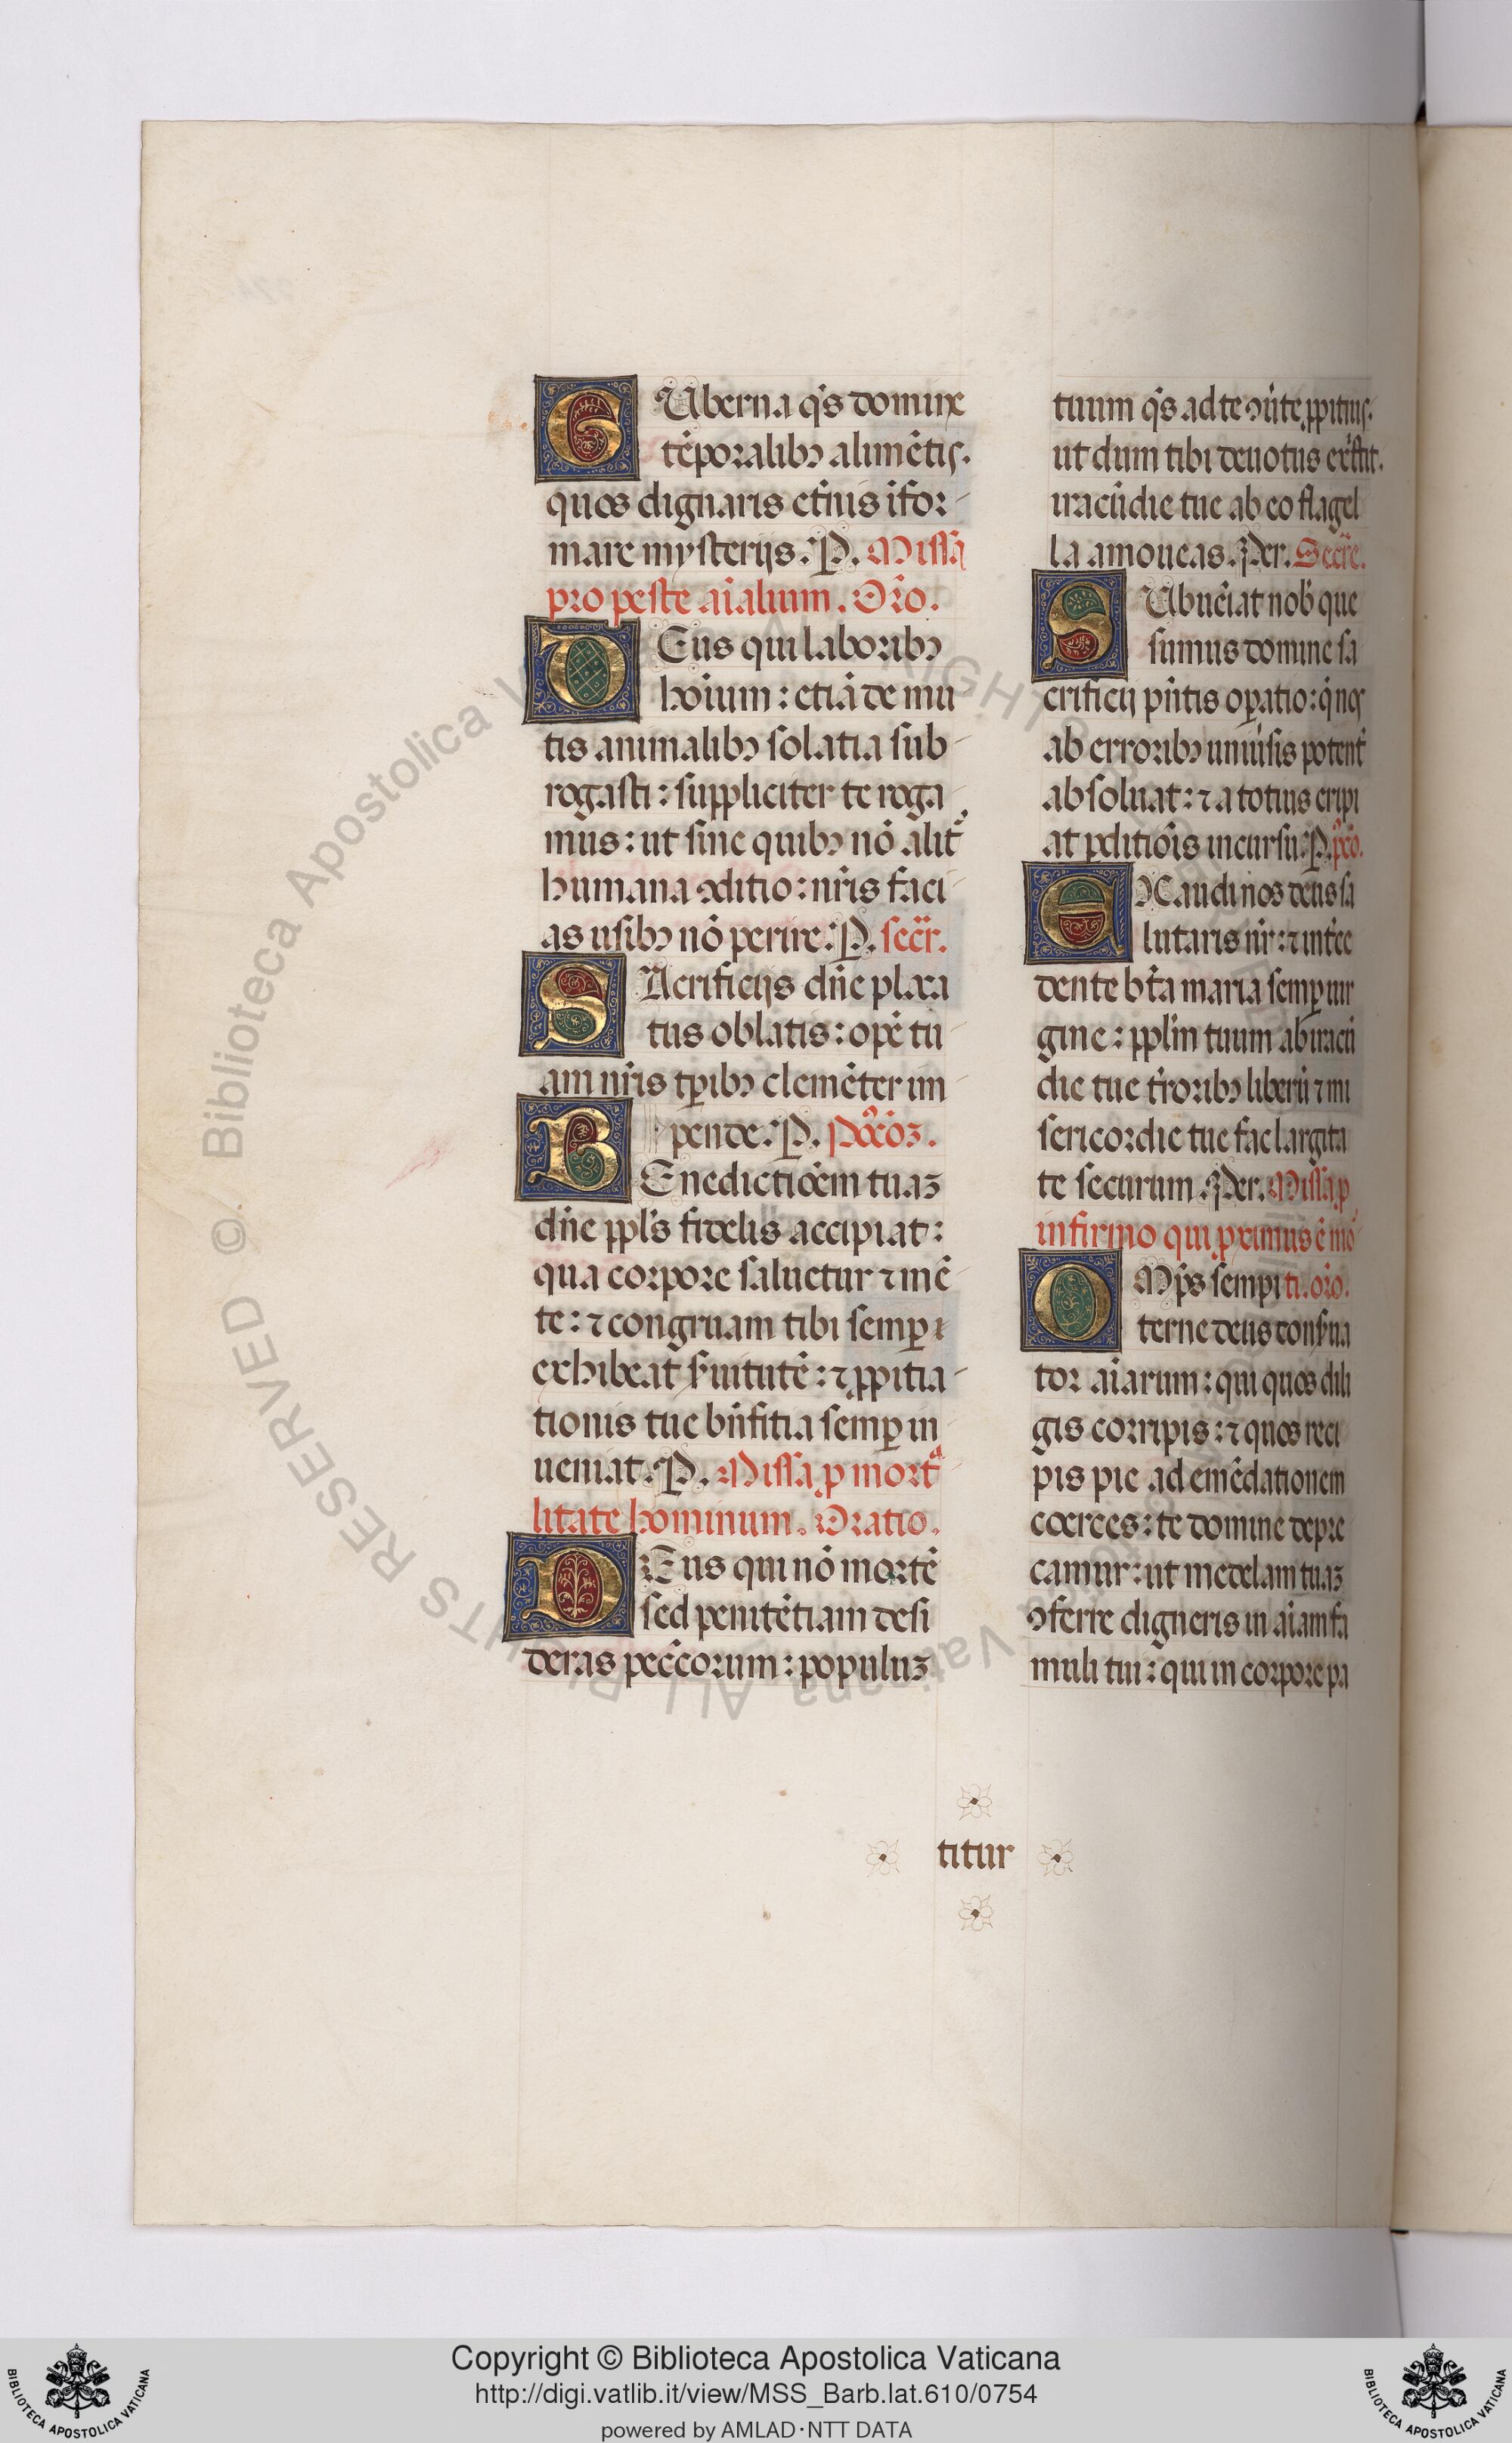 GUberna q̃s domine
tẽporalibꝰ alimẽtis.
quos dignaris et̃nis ĩfor-
mare mysterijs. P. Missa
pro peste aĩalium. Orõ.
DEus qui laboribꝰ
hoĩum: etiã de mu
tis animalibꝰ solatia sub-
rogasti: suppliciter te roga
mus: ut sine quibꝰ nõ alit᷑
humana ꝯditio: nr̃is faci-
as usibꝰ nõ perire. P. secr̃.
SAcrificijs dñe placa
tus oblatis: opẽ tu
am nr̃is tp̃ibꝰ clemẽter im-
pende. P. Pꝰcõꝫ.
BEnedictiõem tuaꝫ
dñe ppl̃s fidelis accipiat:
qua corpore saluetur ⁊ mẽ
te: ⁊ congruam tibi semp̱
exhibeat s̃uitutẽ: ⁊ ꝓpitia-
tionis tue bñfitia semp̱ in
ueniat. P. Missa ꝓ mortᵃ
litate hominum. Oratio.
DEus qui nõ mortẽ
sed penitẽtiam desi
deras pecc̃orum: populuꝫ
tuum q̃s ad te ꝯũte ꝓpitius.
ut dum tibi deuotus ex̃stit.
iracũdie tue ab eo flagel
la amoueas. Per. Secre.
SUbueĩat nob̃ que
sumus domine sa
crificij pñtis op̱atio: q̃ nos
ab erroribꝰ uniũsis potent᷑
absoluat: ⁊ a totius eripi
at ꝑditiõis incursu. P. pꝰcõ.
EXaudi nos deus sa
lutaris nr̃: ⁊ int̃ce
dente bt̃a maria semp̱ uir
gine: ppl̃m tuum ab iracũ
die tue t̃roribꝰ liberũ ⁊ mi
sericordie tue fac largita
te securum. Per. Missa ꝓ
infirmo qui ꝓximus ẽ mo
OMp̃s sempi ti. orõ.
terne deus cons̃ua
tor aĩarum: qui quos dili
gis corripis: ⁊ quos reci
pis pie ad emẽdationem
coerces: te domine depre
camur: ut medelam tuaꝫ
ꝯferre digneris in aĩam fa
muli tui: qui in corpore pa
titur
Copyright © Biblioteca Apostolica Vaticana
http://digi.vatlib.it/view/MSS_Barb.lat.610/0754
powered by AMLAD·NTT DATA
BIBLIOTECA APOSTOLICA VATICANA
BIBLIOTECA APOSTOLICA VATICANA